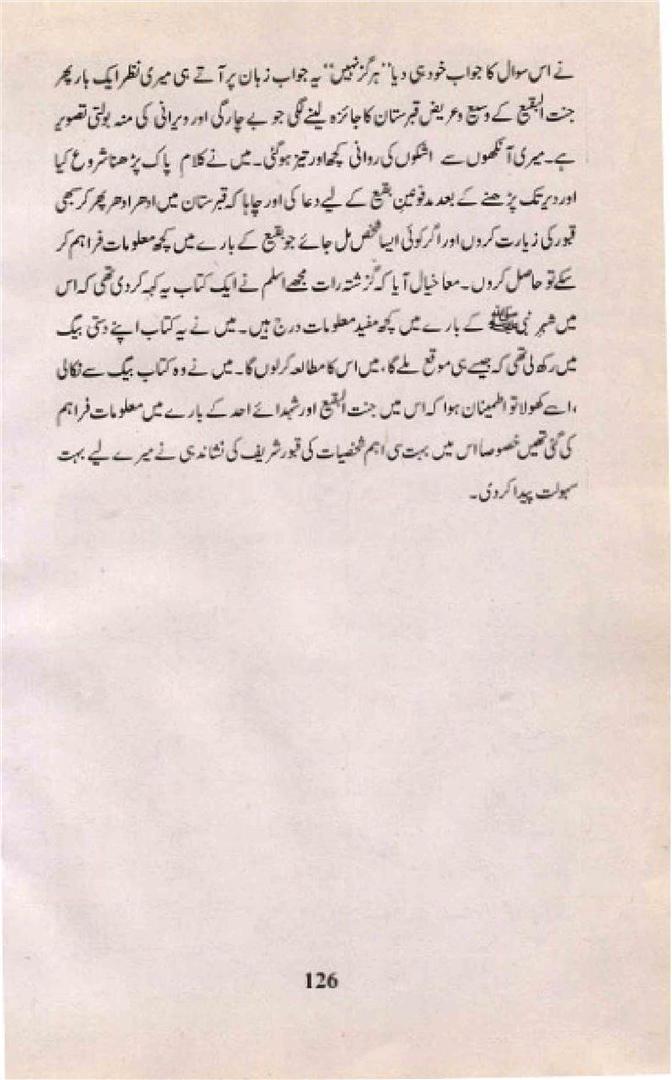 نے اس سوال کا جواب خود ہی دیا "ہرگز نہیں" یہ جواب زبان پر آتے ہی میری نظر ایک بار پھر
جنت البقیع کے وسیع و عریض قبرستان کا جائزہ لینے لگی جو بے چارگی اور ویرانی کی منہ بولتی تصویر
ہے۔ میری آنکھوں سے اشکوں کی روانی کچھ اور تیز ہوگئی۔ میں نے کلام پاک پڑھنا شروع کیا
اور دیر تک پڑھنے کے بعد مدفونین بقیع کے لیے دعا کی اور چاہا کہ قبرستان میں ادھر ادھر پھر کر سبھی
قبور کی زیارت کروں اور اگر کوئی ایسا شخص مل جائے جو بقیع کے بارے میں کچھ معلومات فراہم کر
سکے تو حاصل کروں۔ معا خیال آیا کہ گزشتہ رات مجھے اسلم نے ایک کتاب یہ کہہ کر دی تھی کہ اس
میں شہر نبی ﷺ کے بارے میں کچھ مفید معلومات درج ہیں۔ میں نے یہ کتاب اپنے دستی بیگ
میں رکھ لی تھی کہ جیسے ہی موقع ملے گا، میں اس کا مطالعہ کرلوں گا۔ میں نے وہ کتاب بیگ سے نکالی
،اسے کھولا تو اطمینان ہوا کہ اس میں جنت البقیع اور شہدائے احد کے بارے میں معلومات فراہم
کی گئی تھیں خصوصا اس میں بہت سی اہم شخصیات کی قبور شریف کی نشاندہی نے میرے لیے بہت
سہولت پیدا کردی۔
126